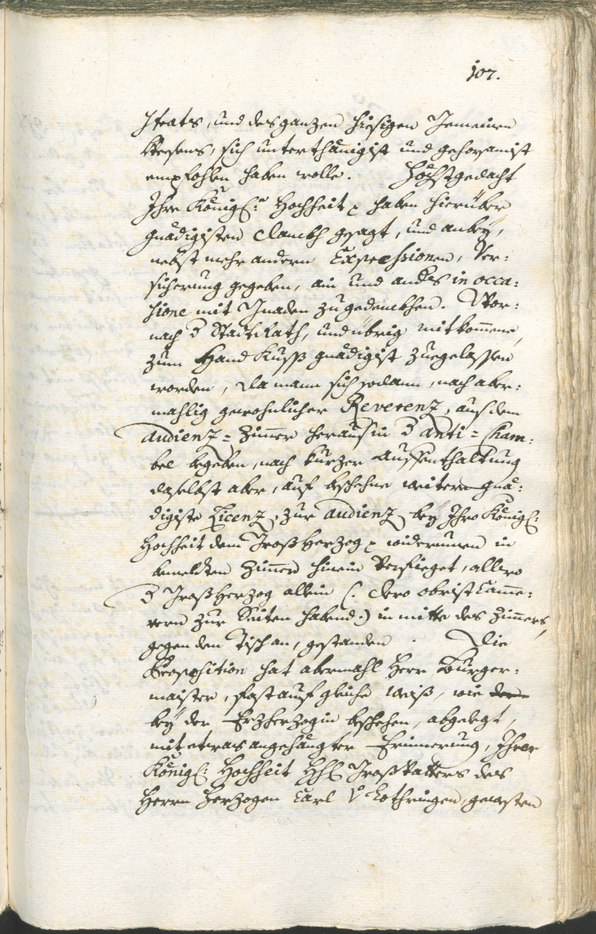 107.
Staats, und des ganzen hiesigen Gemeinen
Weesens, sich unterthänigist und gehorsamist
empfohlen haben wolle. Höchstgedacht
Ihre Königl: Hochheit haben hierüber
gnädigisten danckh gesagt, und anbey,
nebst mehr andern Expressionen, Ver:
sicherung gegeben, ain und anders in occa:
sione mit Gnaden zu gedenckhen. Wor:
nach StadtRath, und übrig mitkommene,
zum Hand Kuss gnädigist zuegelassen
worden, da mann sich sodann, nach aber:
mahlig gewohnlicher Reverenz, aus dem
audienz = Zimmer heraus in anti = Cham:
bre begeben, nach kurzer Aufenthaltung
daselbst aber, auf beschehene weitere gnä:
digiste Licenz, zur audienz bey Ihro Königl:
Hochheit dem Grossherzog widerumen in
bemelten Zimmer hinein verfüeget, allwo
Grossherzog allein (: dero obrist Came:
rern zur Seiten habend:) in mitte des Zimmers,
gegen den Tisch an, gestanden. Die
Proposition hat abermahl Herr Burger:
maister, fast auf gleiche weiß, wie
bey der Erzherzogin beschehen, abgelegt,
mit etwas angehängter Erinnerung, Ihrer
Königl: Hochheit Grossvatters des
Herrn Herzogen Carl V Lothringen, gewesten